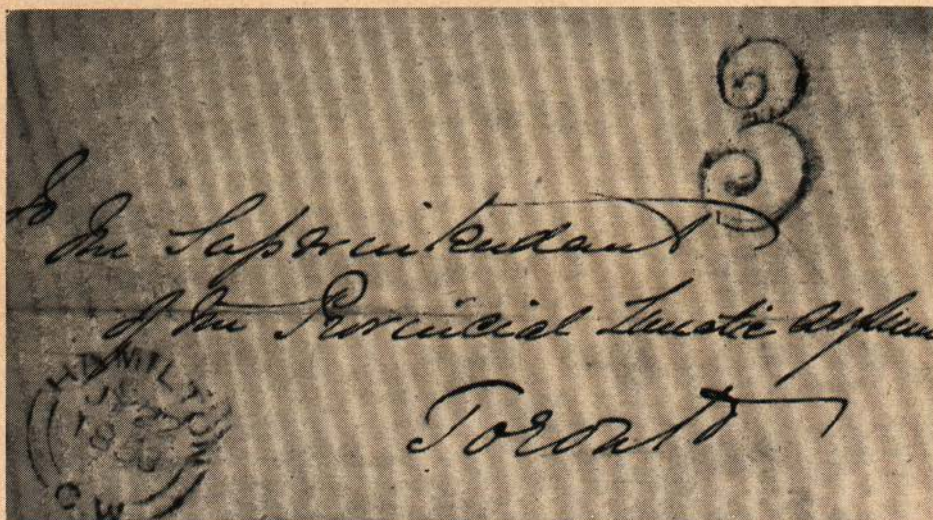 3
To
The Superintendant
of the Provincial Lunatic Asylum
Toronto
HAMILTON
C W